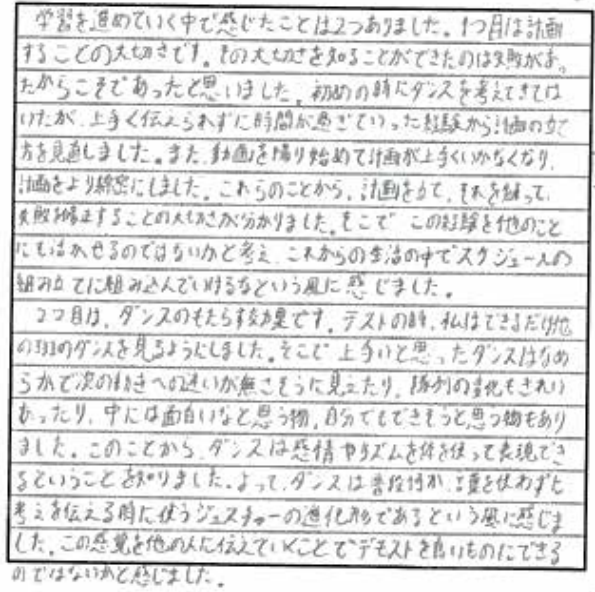 学習を進めていく中で感じたことは2つありました。1つ目は計画
することの大切さです。その大切さを知ることができたのは失敗があっ
たからこそであったと思いました。初めの時にダンスを考えてきては
いたが、上手く伝えられずに時間が過ぎていった経験から計画の立て
方を見直しました。また、動画を撮り始めて計画が上手くいかなくなり、
計画をより綿密にしました。これらのことから、計画を立て、それを練って、
失敗を修正することの大切さが分かりました。そこで この経験を他のこと
にも活かせるのではないかと考え、これからの生活の中でスケジュールの
組み立てに組み込んでいけるなという風に感じました。
2つ目は、ダンスのもたらす効果です。テストの時、私はできるだけ他
の班のダンスを見るようにしました。そこで 上手いと思ったダンスはなめ
らかで次の動きへの迷いが無さそうに見えたり、隊列の変化もきれい
だったり、中には面白いなと思う物、自分でもできそうと思う物もあり
ました。このことから、ダンスは感情やリズムを体を使って表現でき
るということを知りました。よって、ダンスは普段何か言葉を使わずに
考えを伝える時に使うジェスチャーの進化形であるという風に感じま
した。この感覚を他の人に伝えていくことでデモストを良いものにできる
のではないかと感じました。